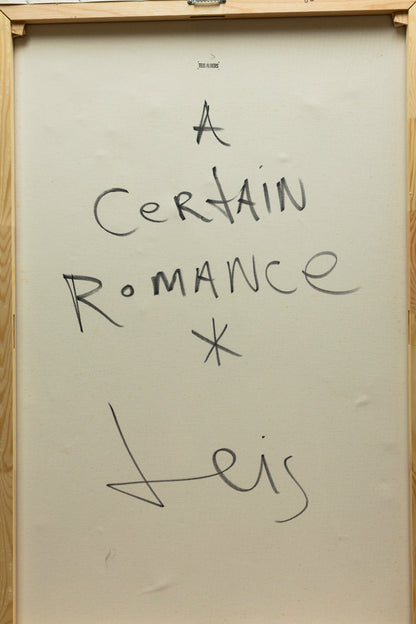 A
CeRtAIN
RoMANCe
*
Leis